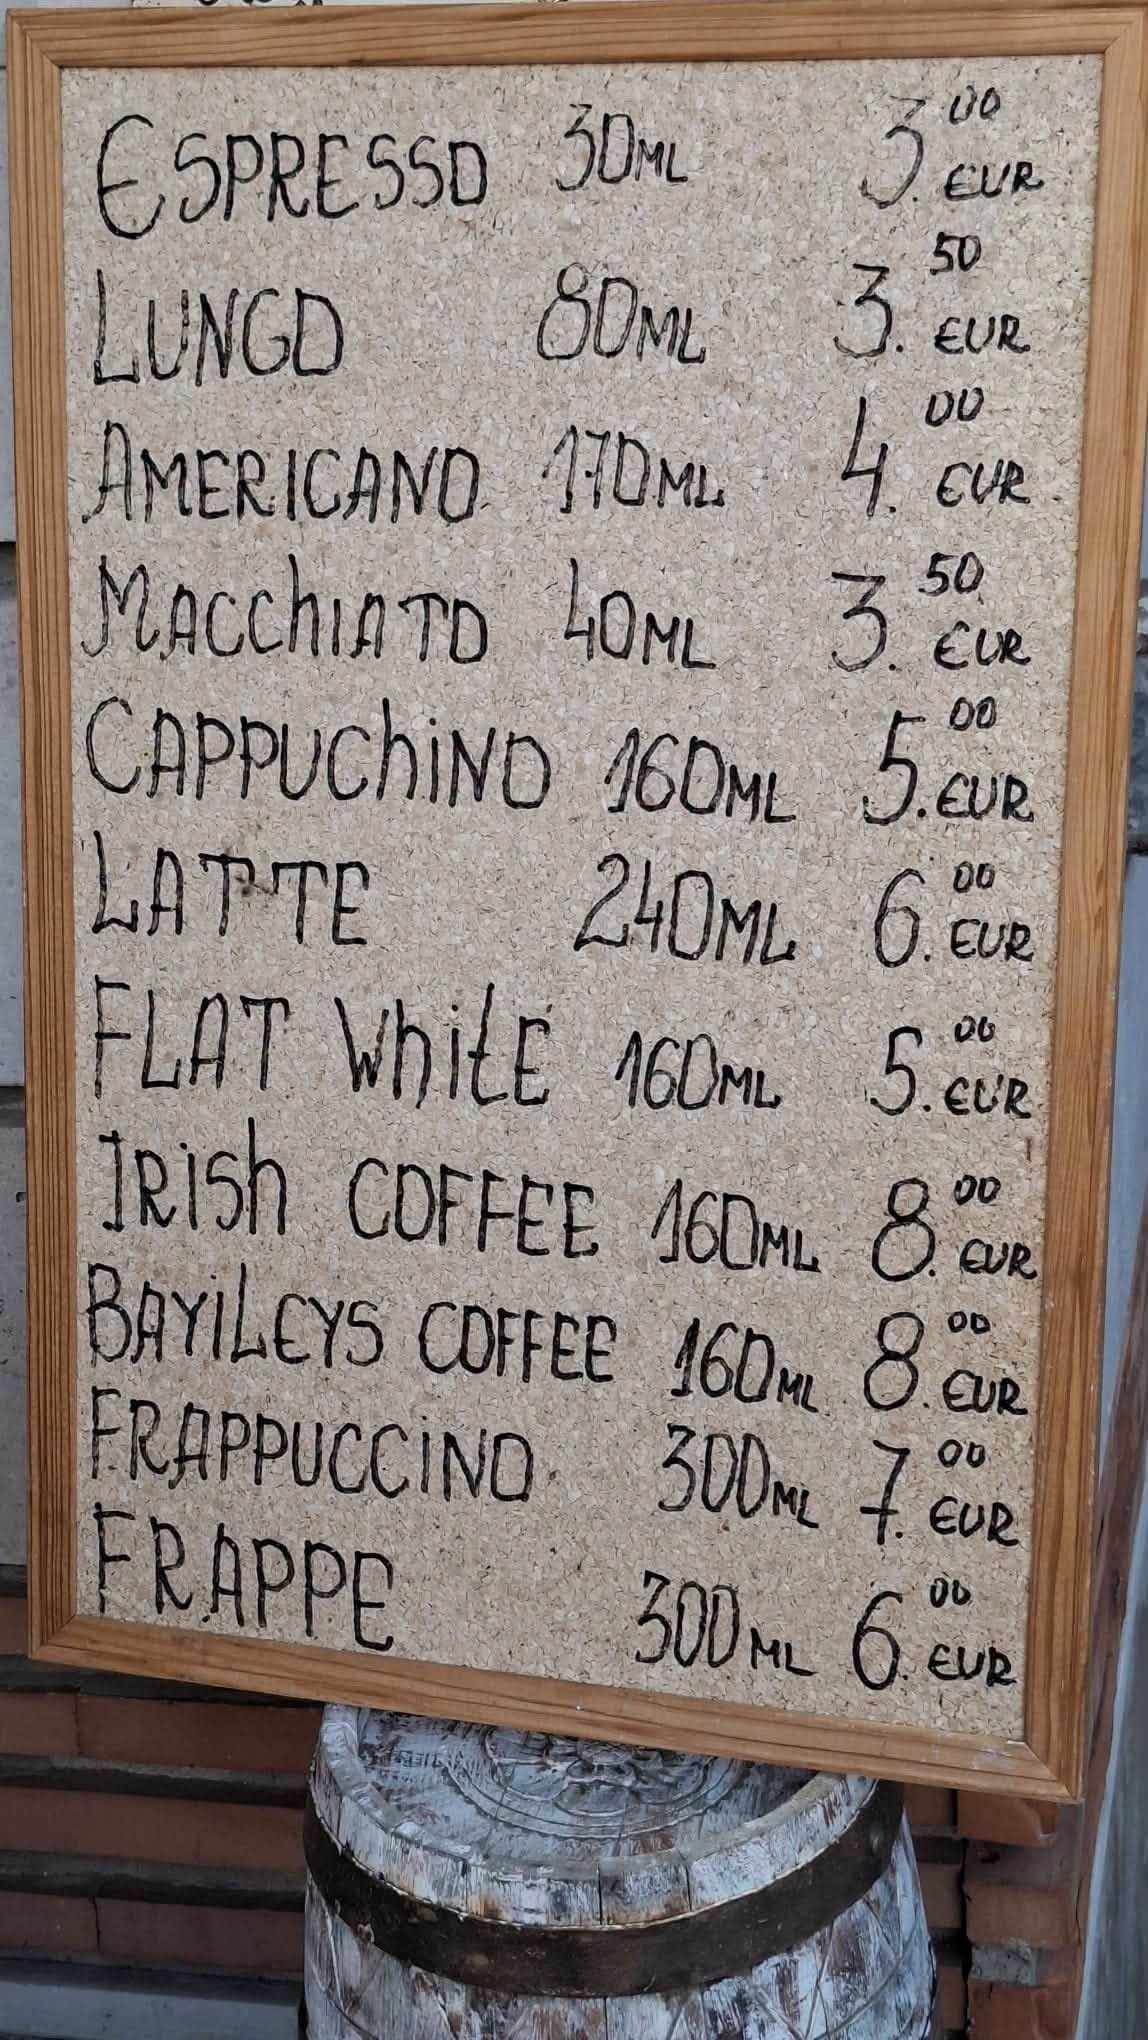 ESPRESSO 30ML 3.00 EUR
LUNGO 80ML 3.50 EUR
AMERICANO 170ML 4.00 EUR
MACChIATO 40ML 3.50 EUR
CAPPUChiNO 160ML 5.00 EUR
LATTE 240ML 6.00 EUR
FLAT WhitE 160ML 5.00 EUR
IRiSh COFFEE 160ML 8.00 EUR
BAYiLEYS COFFEE 160ML 8.00 EUR
FRAPPUCCiNO 300ML 7.00 EUR
FRAPPE 300ML 6.00 EUR